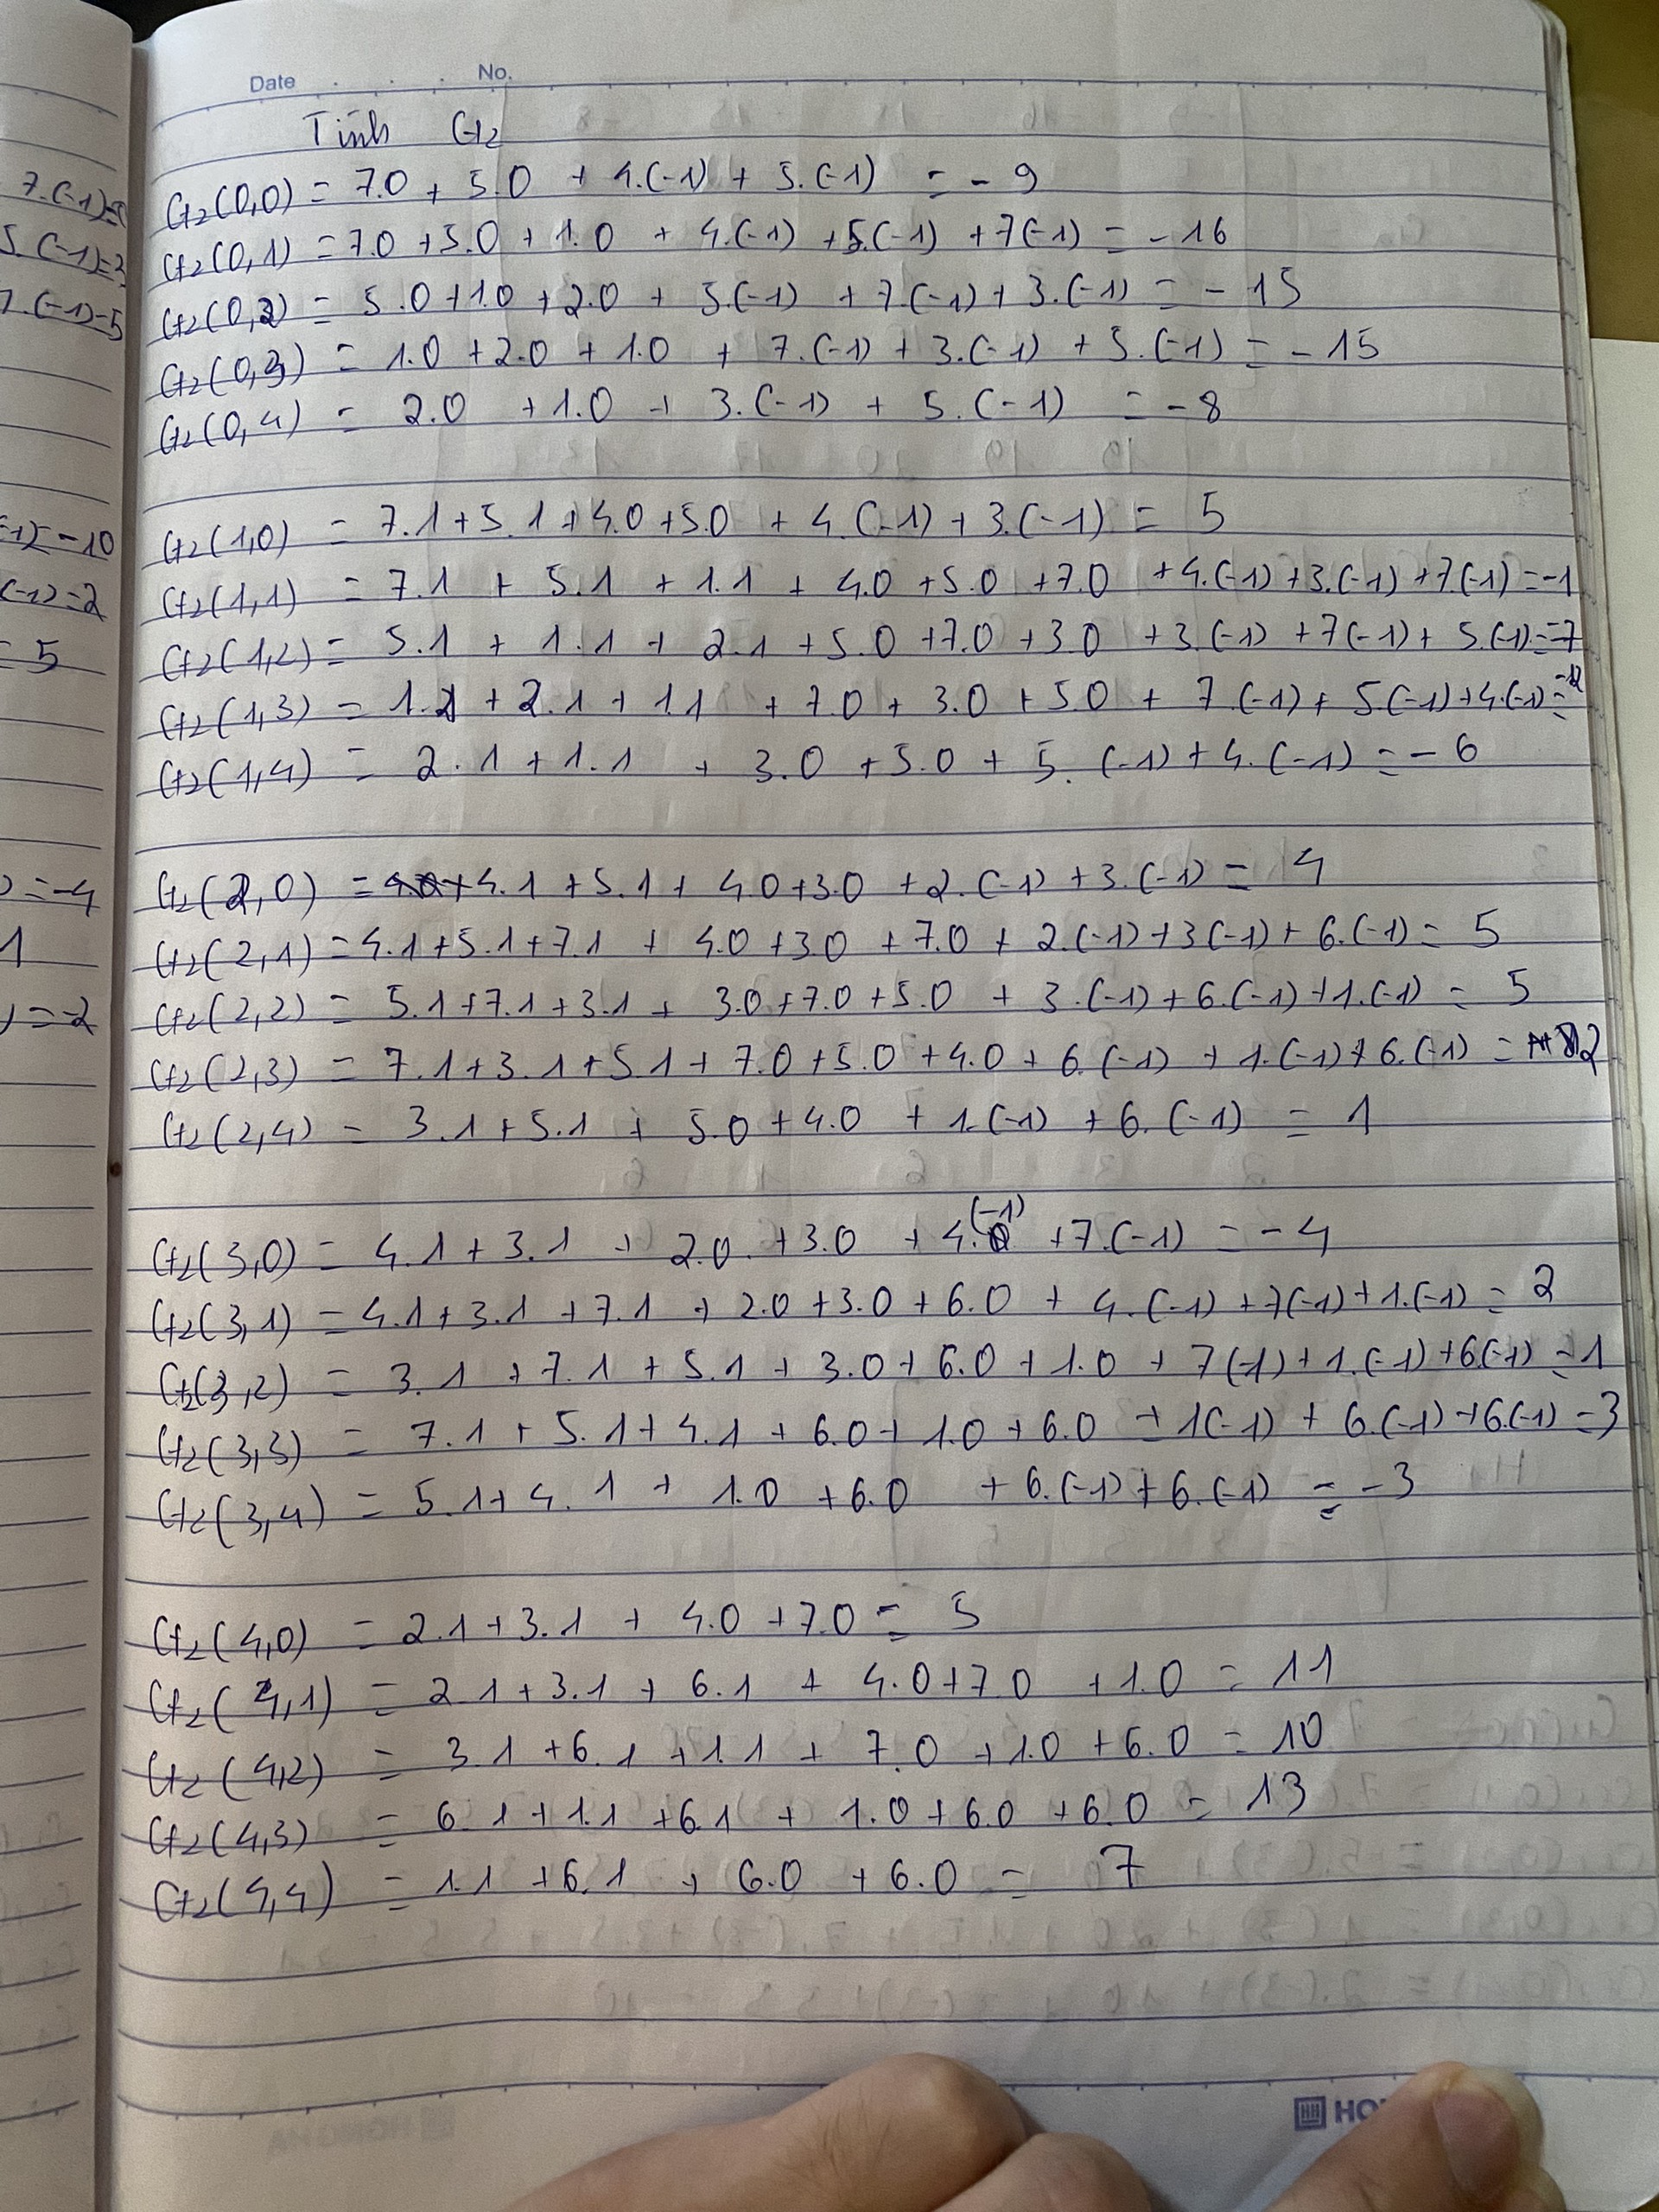 Date No.
Tính G2
7.(-1)=
5.(-1)=3
7.(-1)-5
G2(0,0) = 7.0 + 5.0 + 4.(-1) + 5.(-1) = -9
G2(0,1) = 7.0 + 5.0 + 1.0 + 4.(-1) + 5.(-1) + 7(-1) = -16
G2(0,2) = 5.0 + 1.0 + 2.0 + 5.(-1) + 7.(-1) + 3.(-1) = -15
G2(0,3) = 1.0 + 2.0 + 1.0 + 7.(-1) + 3.(-1) + 5.(-1) = -15
G2(0,4) = 2.0 + 1.0 + 3.(-1) + 5.(-1) = -8
-1)=-10
(-1)=2
= 5
G2(1,0) = 7.1 + 5.1 + 4.0 + 5.0 + 4.(-1) + 3.(-1) = 5
G2(1,1) = 7.1 + 5.1 + 1.1 + 4.0 + 5.0 + 7.0 + 4.(-1) + 3.(-1) + 7.(-1) = -1
G2(1,2) = 5.1 + 1.1 + 2.1 + 5.0 + 7.0 + 3.0 + 3.(-1) + 7(-1) + 5.(-1) = -7
G2(1,3) = 1.1 + 2.1 + 1.1 + 7.0 + 3.0 + 5.0 + 7.(-1) + 5(-1) + 4.(-1) = -12
G2(1,4) = 2.1 + 1.1 + 3.0 + 5.0 + 5.(-1) + 4.(-1) = -6
) = -4
1
) = -2
G2(2,0) = 4.1 + 5.1 + 4.0 + 3.0 + 2.(-1) + 3.(-1) = 4
G2(2,1) = 4.1 + 5.1 + 7.1 + 4.0 + 3.0 + 7.0 + 2.(-1) + 3(-1) + 6.(-1) = 5
G2(2,2) = 5.1 + 7.1 + 3.1 + 3.0 + 7.0 + 5.0 + 3.(-1) + 6.(-1) + 1.(-1) = 5
G2(2,3) = 7.1 + 3.1 + 5.1 + 7.0 + 5.0 + 4.0 + 6.(-1) + 1.(-1) + 6.(-1) = 2
G2(2,4) = 3.1 + 5.1 + 5.0 + 4.0 + 1.(-1) + 6.(-1) = 1
G2(3,0) = 4.1 + 3.1 + 2.0 + 3.0 + 4.(-1) + 7.(-1) = -4
G2(3,1) = 4.1 + 3.1 + 7.1 + 2.0 + 3.0 + 6.0 + 4.(-1) + 7(-1) + 1.(-1) = 2
G2(3,2) = 3.1 + 7.1 + 5.1 + 3.0 + 6.0 + 1.0 + 7(-1) + 1.(-1) + 6(-1) = 1
G2(3,3) = 7.1 + 5.1 + 4.1 + 6.0 + 1.0 + 6.0 + 1(-1) + 6.(-1) + 6.(-1) = 3
G2(3,4) = 5.1 + 4.1 + 1.0 + 6.0 + 6.(-1) + 6.(-1) = -3
G2(4,0) = 2.1 + 3.1 + 4.0 + 7.0 = 5
G2(4,1) = 2.1 + 3.1 + 6.1 + 4.0 + 7.0 + 1.0 = 11
G2(4,2) = 3.1 + 6.1 + 1.1 + 7.0 + 1.0 + 6.0 = 10
G2(4,3) = 6.1 + 1.1 + 6.1 + 1.0 + 6.0 + 6.0 = 13
G2(4,4) = 1.1 + 6.1 + 6.0 + 6.0 = 7